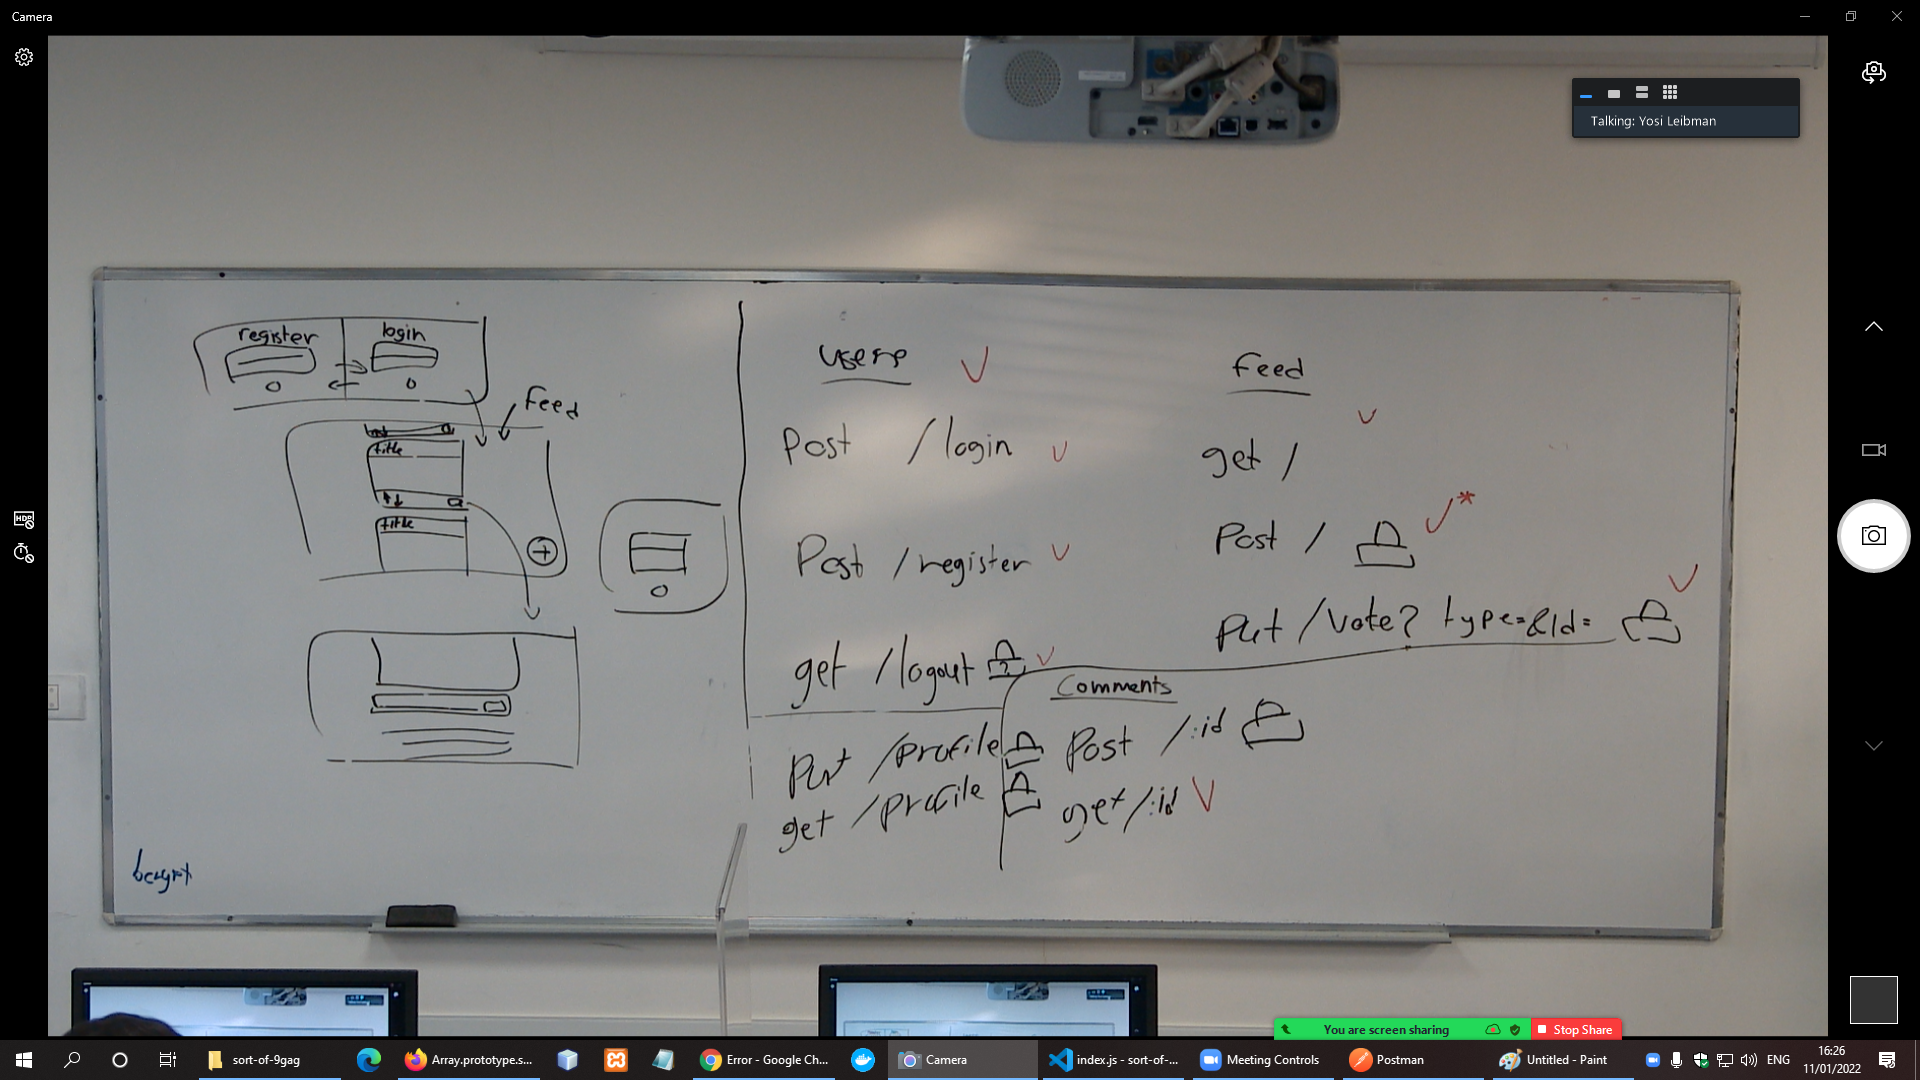 Camera
Talking: Yosi Leibman
register
login
Feed
title
title
users
Post /login
Post /register
get /logout
Put /profile
get /profile
Feed
get /
Post / *
Put /vote? type=&id=
Comments
Post /:id
get /:id
You are screen sharing
Stop Share
sort-of-9gag
Array.prototype.s...
Error - Google Ch...
Camera
index.js - sort-of-...
Meeting Controls
Postman
Untitled - Paint
ENG
16:26
11/01/2022